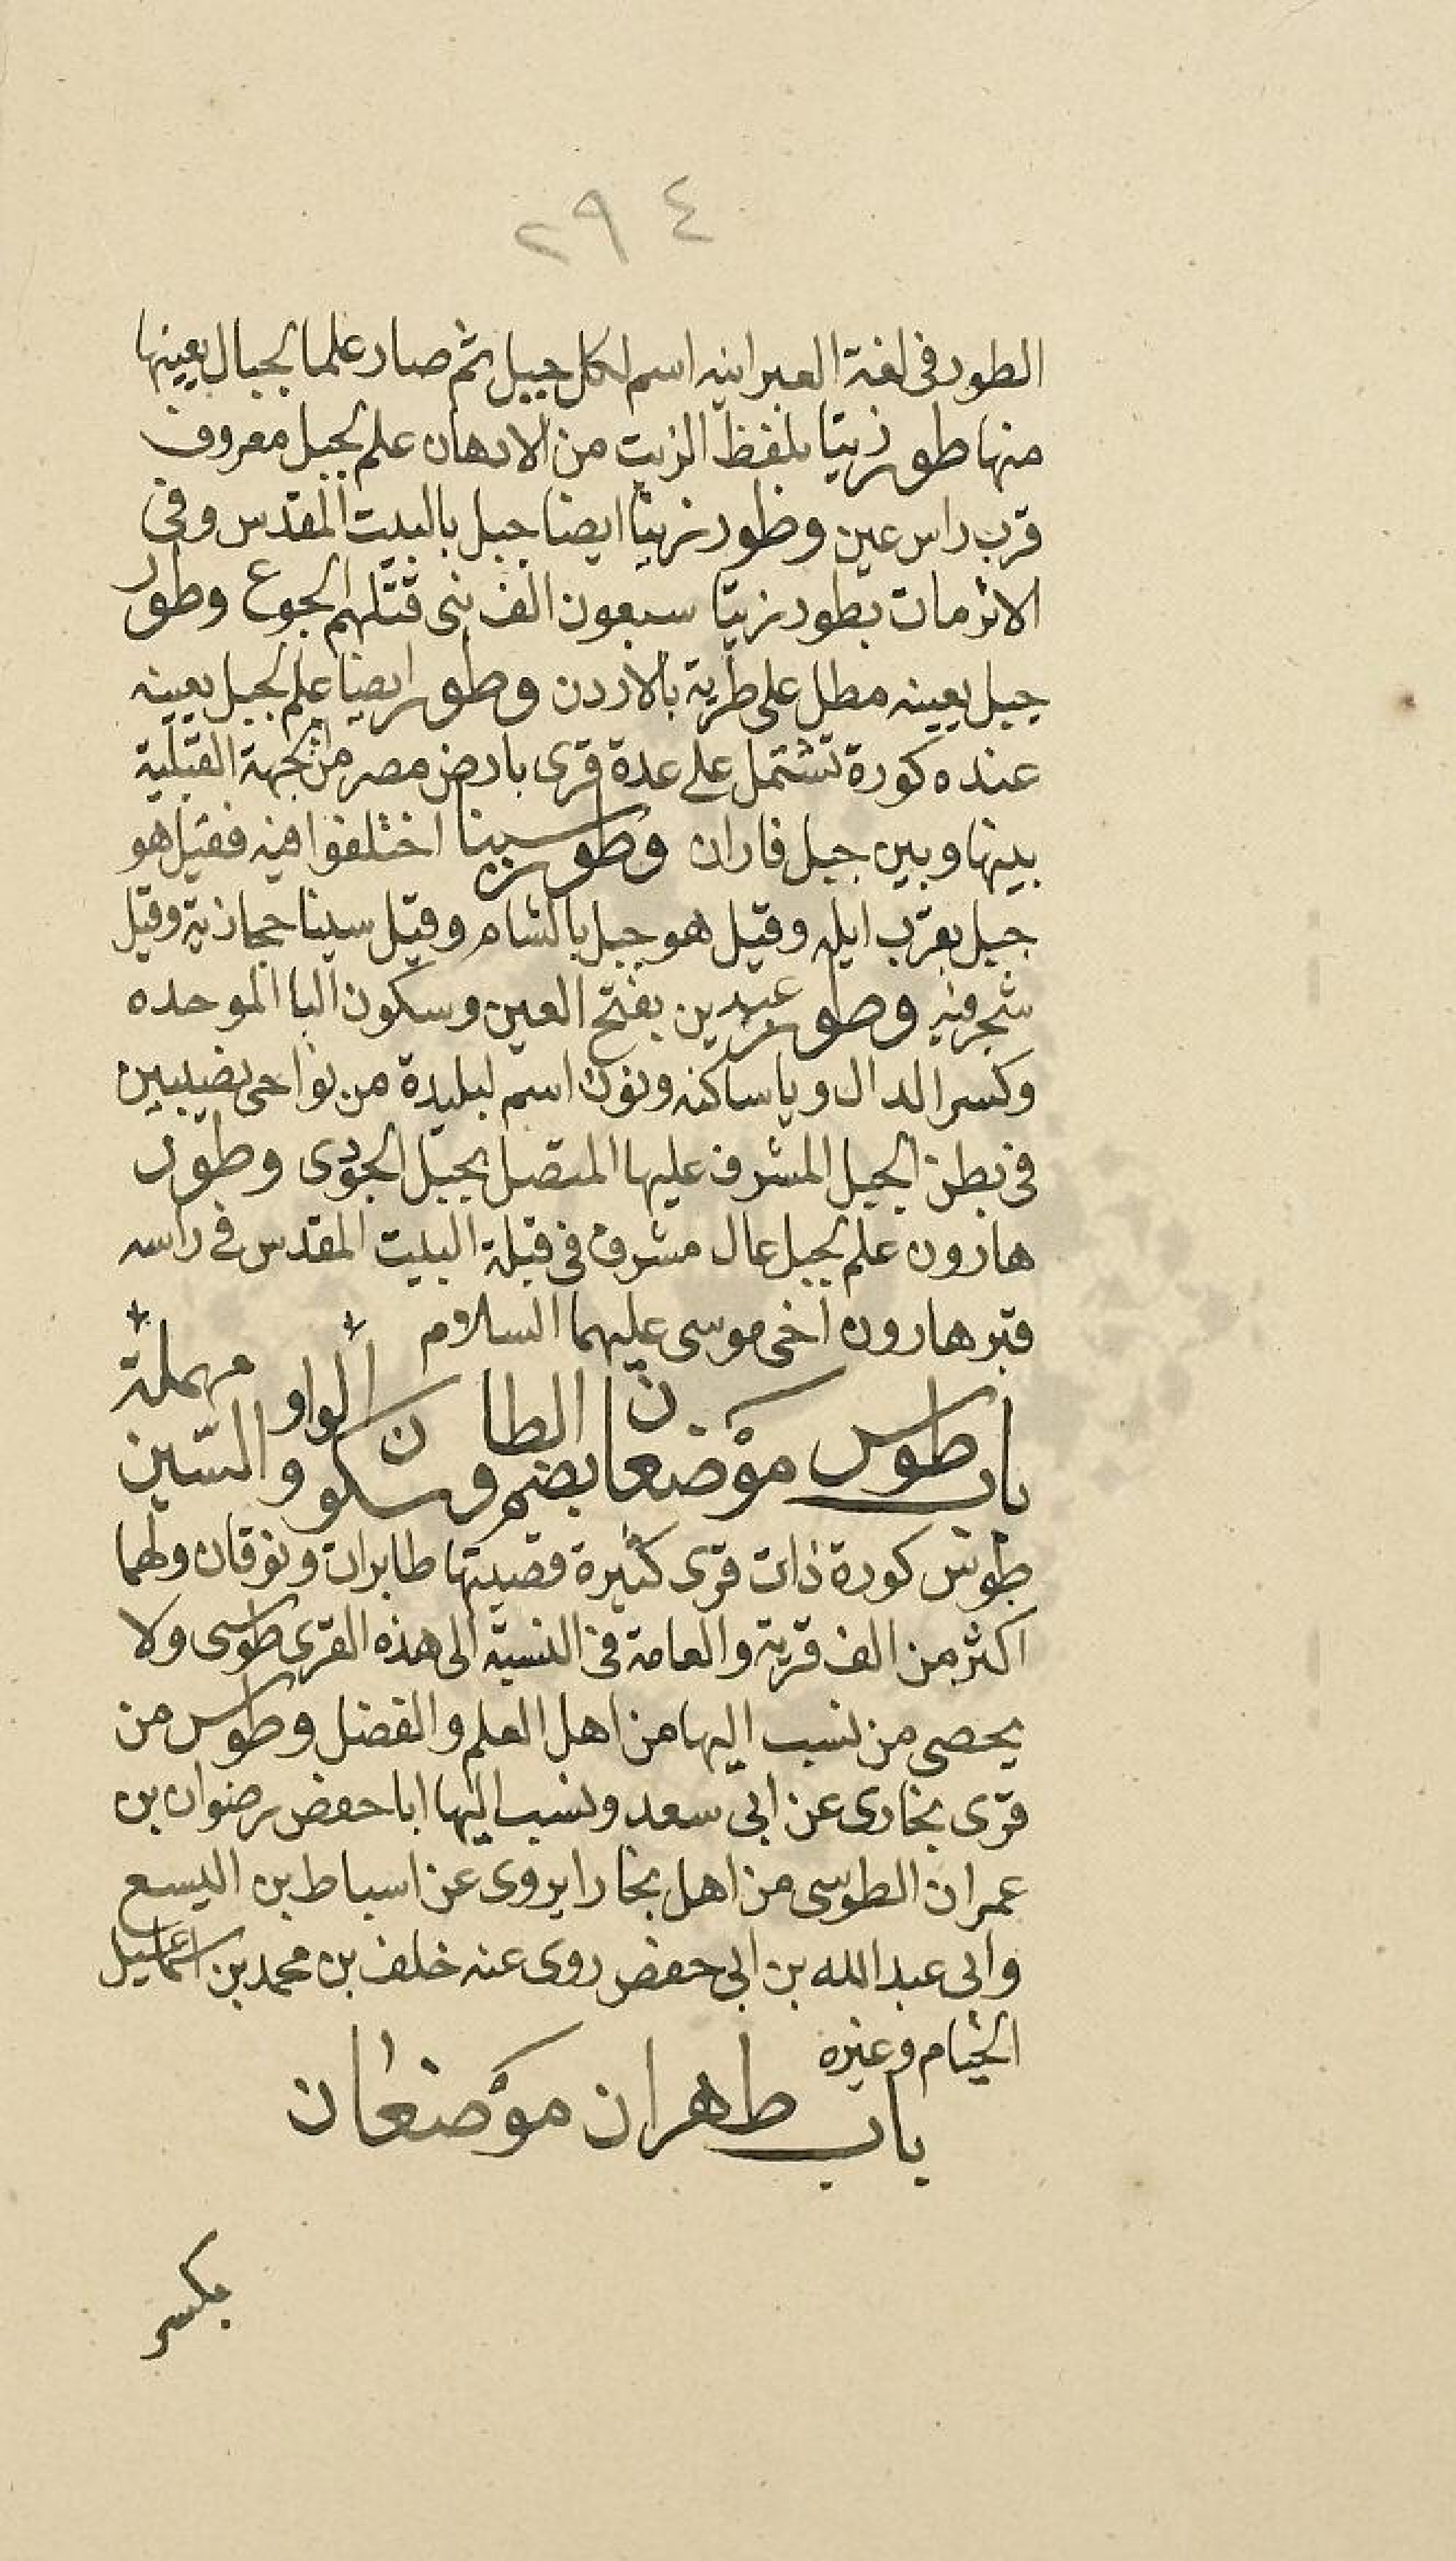 ٢٩٤
الطور فى لغة العبرانيه اسم لكل جبل ثم صار علما لجبال بعينها
منها طور زيتا بلفظ الزيت من الادهان علم لجبل معروف
قرب راس عين وطور زيتا ايضا جبل بالبيت المقدس وفى
الاثر مات بطور زيتا سبعون الف نبى قتلهم الجوع وطور
جبل بعينه مطل على طبرية بالاردن وطور ايضا علم لجبل بعينه
عنده كورة تشتمل على عدة قرى بارض مصر من الجهة القبلية
بينها وبين جبل فاران وطور سينا اختلفوا فيه فقيل هو
جبل بقرب ايله وقيل هو جبل بالشام وقيل سينا حجازية وقيل
شجر فيه وطور عبدين بفتح العين وسكون البا الموحده
وكسر الدال ويا ساكنه ونون اسم لبليدة من نواحى نصيبين
فى بطن الجبل المشرف عليها المتصل بجبل الجودى وطور
هارون علم لجبل عال مشرف فى قبلة البيت المقدس فى راسه
قبر هارون اخى موسى عليهما السلام
باب طوس موضعان بضم الطا وسكون الواو والسين مهملة
طوس كورة ذات قرى كثيرة قصبتها طابران ونوقان ولهما
اكثر من الف قرية والعامة فى النسبة الى هذه القرى طوسى ولا
يحصى من نسب اليها من اهل العلم والفضل وطوس من
قرى بخارى عن ابى سعد ونسب اليها ابا حفص رضوان بن
عمران الطوسى من اهل بخارا يروى عن اسباط بن اليسع
وابى عبدالله بن ابى حفص روى عنه خلف بن محمد بن اسماعيل
الخيام وغيره
باب طهران موضعان
بكسر